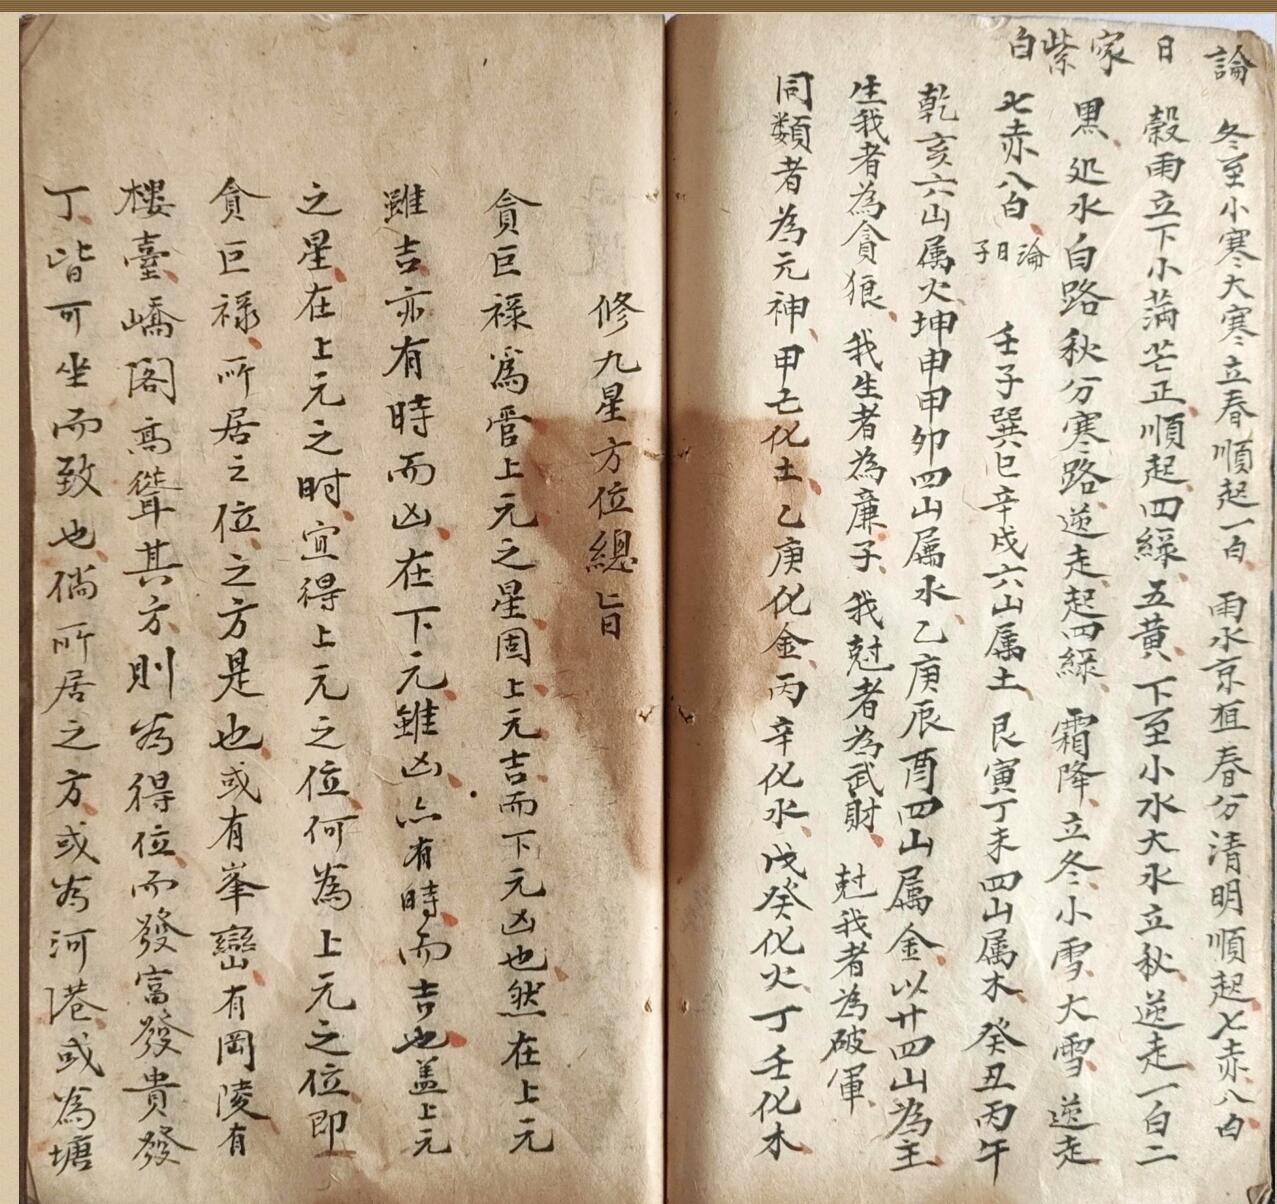 論日家紫白
冬至小寒大寒立春順起一白雨水京狚春分清明順起七赤八白
穀雨立下小满芒正順起四緑五黄下至小水大水立秋逆走一白二
黒処水白路秋分寒路逆走起四緑霜降立冬小雪大雪逆走
七赤八白
論日子
壬子巽巳辛戌六山属土艮寅丁未四山属木癸丑丙午
乾亥六山属火坤申甲卯四山属水乙庚辰酉四山属金以廿四山為主
生我者為貪狼我生者為廉子我尅者為武財尅我者為破軍
同類者為元神甲己化土乙庚化金丙辛化水戊癸化火丁壬化木
修九星方位總旨
貪巨禄爲管上元之星固上元吉而下元凶也然在上元
雖吉亦有時而凶在下元雖凶亦有時而吉也盖上元
之星在上元之时宜得上元之位何為上元之位即
貪巨禄所居之位之方是也或有峯巒有岡陵有
樓臺嶠阁高聳其方則为得位而發富發貴發
丁皆可坐而致也倘所居之方或为河港或為塘